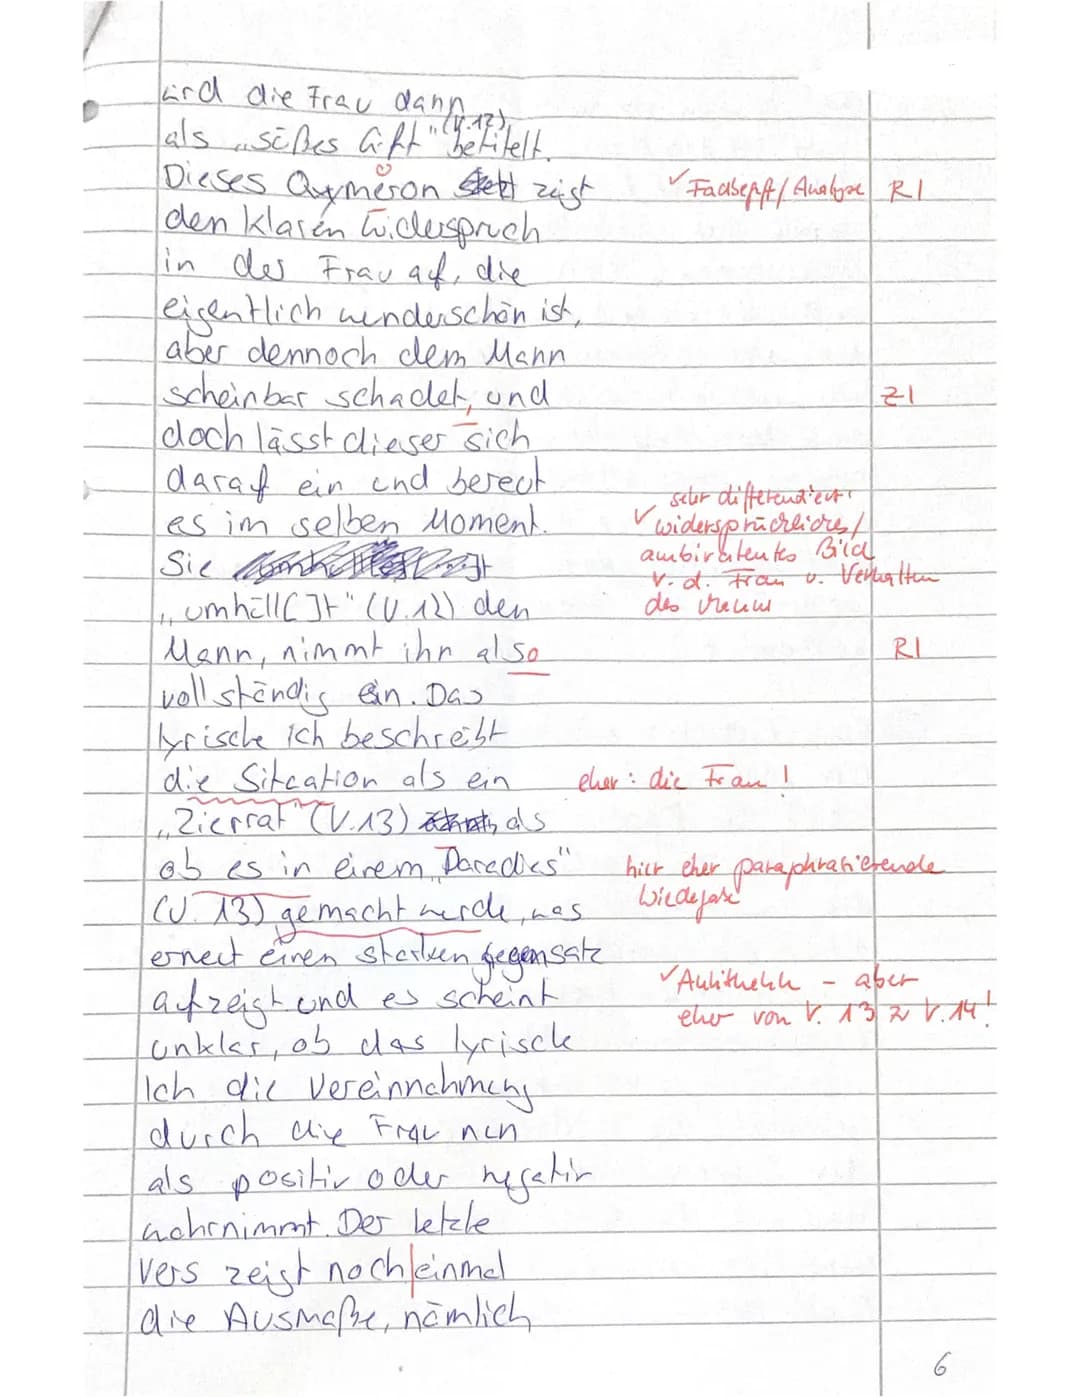 wird die Frau dann
als „süßes Gift" (V.12) betitelt.
Dieses Oxymeron zeigt
✓ Fachbegriff / Analyse R I
den klaren Widerspruch
in der Frau auf, die
eigentlich wunderschön ist,
aber dennoch dem Mann
scheinbar schadet, und
Z I
doch lässt dieser sich
darauf ein und bereut
es im selben Moment.
sehr differenziert
✓ widersprüchliches /
ambivalentes Bild
v. d. Frau u. Verhalten
des Mannes
Sie
„umhüll[]t" (V.12) den
Mann, nimmt ihn also
R I
vollständig ein. Das
lyrische Ich beschreibt
die Situation als ein
eher: die Frau!
„Zierrat" (V.13) als
ob es in einem „Paradies"
hier eher paraphrasierende
Wiedergabe
(V. 13) gemacht werde, was
erneut einen starken Gegensatz
aufzeigt und es scheint
✓ Antithetik - aber
eher von V. 13 zu V. 14!
unklar, ob das lyrische
Ich die Vereinnahmung
durch die Frau nun
als positiv oder negativ
wahrnimmt. Der letzte
Vers zeigt noch|einmal
die Ausmaße, nämlich
6